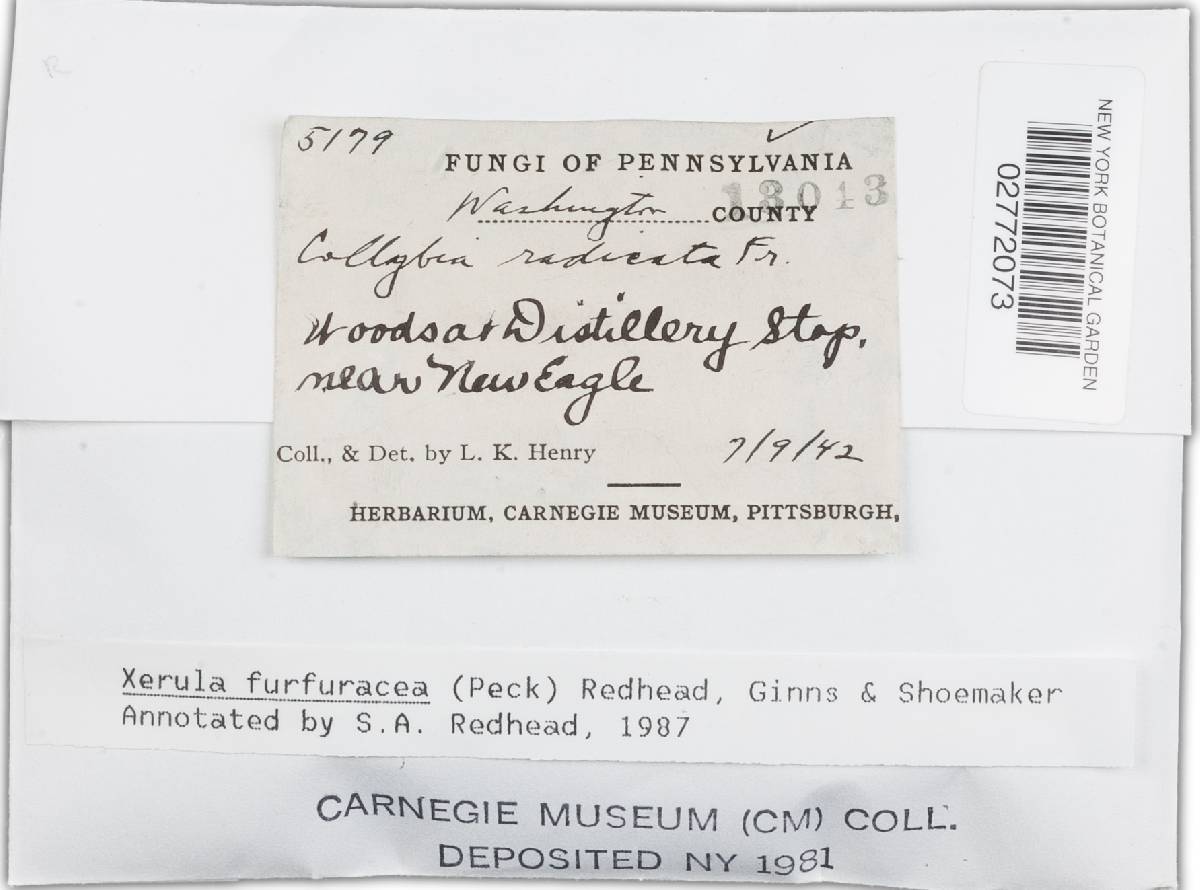 R
5179
FUNGI OF PENNSYLVANIA
13013
Washington COUNTY
Collybia radicata Fr.
Woods at Distillery Stop,
near New Eagle
Coll., & Det. by L. K. Henry 7/9/42
HERBARIUM, CARNEGIE MUSEUM, PITTSBURGH,
NEW YORK BOTANICAL GARDEN
02772073
Xerula furfuracea (Peck) Redhead, Ginns & Shoemaker
Annotated by S.A. Redhead, 1987
CARNEGIE MUSEUM (CM) COLL.
DEPOSITED NY 1981